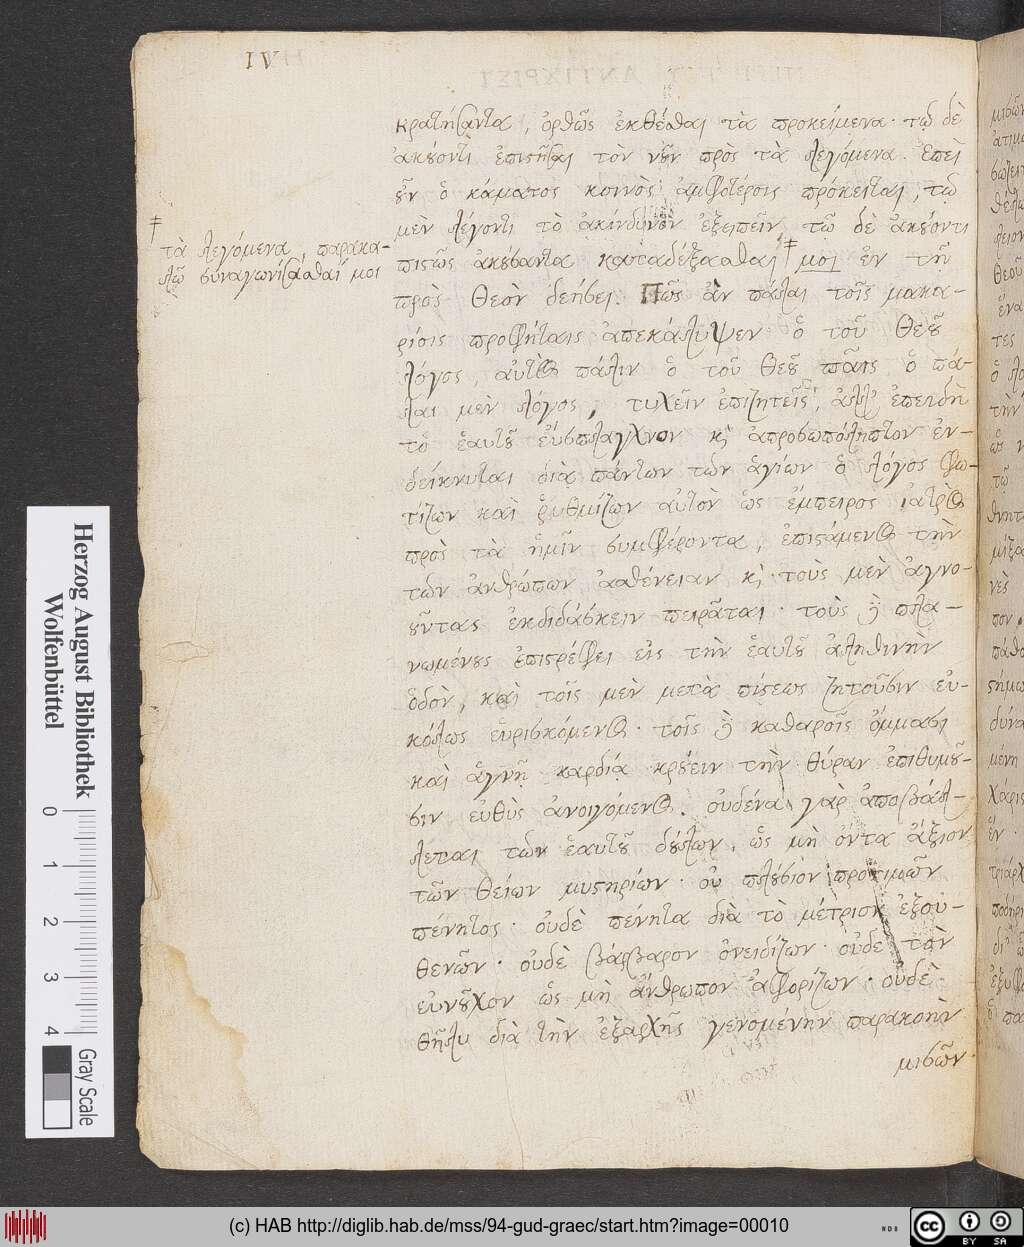 κρατήσαντα, ὀρθῶς ἐκθέσθαι τὰ προκείμενα· τῷ δὲ
ἀκούοντι ἐπιστῆσαι τὸν νοῦν πρὸς τὰ λεγόμενα. Ἐπεὶ
οὖν ὁ κάματος κοινὸς ἀμφοτέροις πρόκειται, τῷ
μὲν λέγοντι τὸ ἀκίνδυνον ἐξειπεῖν, τῷ δὲ ἀκούοντι
πιστῶς ἀκούσαντα καταδέξασθαι ‡ μοι ἐν τῇ
πρὸς Θεὸν δεήσει. Πῶς ἂν πάλαι τοῖς μακα-
ρίοις προφήταις ἀπεκάλυψεν ὁ τοῦ Θεοῦ
λόγος, αὐτὸς πάλιν ὁ τοῦ Θεοῦ παῖς ὁ πά-
λαι μὲν λόγος, τυχεῖν ἐπιζητεῖς, ἀλλ' ἐπειδὴ
τὸ ἑαυτοῦ εὔσπλαγχνον κ̀ ἀπροσωπόληπτον ἐν-
δείκνυται διὰ πάντων τῶν ἁγίων ὁ λόγος φω-
τίζων καὶ ῥυθμίζων αὐτὸν ὡς ἔμπειρος ἰατρὸς
πρὸς τὰ ἡμῖν συμφέροντα, ἐπιστάμενος τὴν
τῶν ἀνθρώπων ἀσθένειαν κ̀ τοὺς μὲν ἀγνο-
οῦντας ἐκδιδάσκειν πειρᾶται· τοὺς δὲ πλα-
νωμένους ἐπιστρέφει εἰς τὴν ἑαυτοῦ ἀληθινὴν
ὁδὸν, καὶ τοῖς μὲν μετὰ πίστεως ζητοῦσιν εὐ-
κόλως εὑρισκόμενος· τοῖς δὲ καθαροῖς ὄμμασι
καὶ ἁγνῇ καρδίᾳ κρούειν τὴν θύραν ἐπιθυμοῦ-
σιν εὐθὺς ἀνοιγόμενος. οὐδένα γὰρ ἀποβάλ-
λεται τῶν ἑαυτοῦ δούλων, ὡς μὴ ὄντα ἄξιον
τῶν θείων μυστηρίων· οὐ πλούσιον προτιμῶν
πένητος· οὐδὲ πένητα διὰ τὸ μέτριον ἐξου-
θενῶν· οὐδὲ βάρβαρον ὀνειδίζων· οὐδὲ τὸν
εὐνοῦχον ὡς μὴ ἄνθρωπον ἀφορίζων· οὐδὲ
θῆλυ διὰ τὴν ἐξαρχῆς γενομένην παρακοὴν
μισῶν·
‡
τὰ λεγόμενα, παρακα-
λῶ συναγωνίσασθαί μοι
Herzog August Bibliothek
Wolfenbüttel
0 1 2 3 4
Gray Scale
(c) HAB http://diglib.hab.de/mss/94-gud-graec/start.htm?image=00010
WDB
cc BY SA